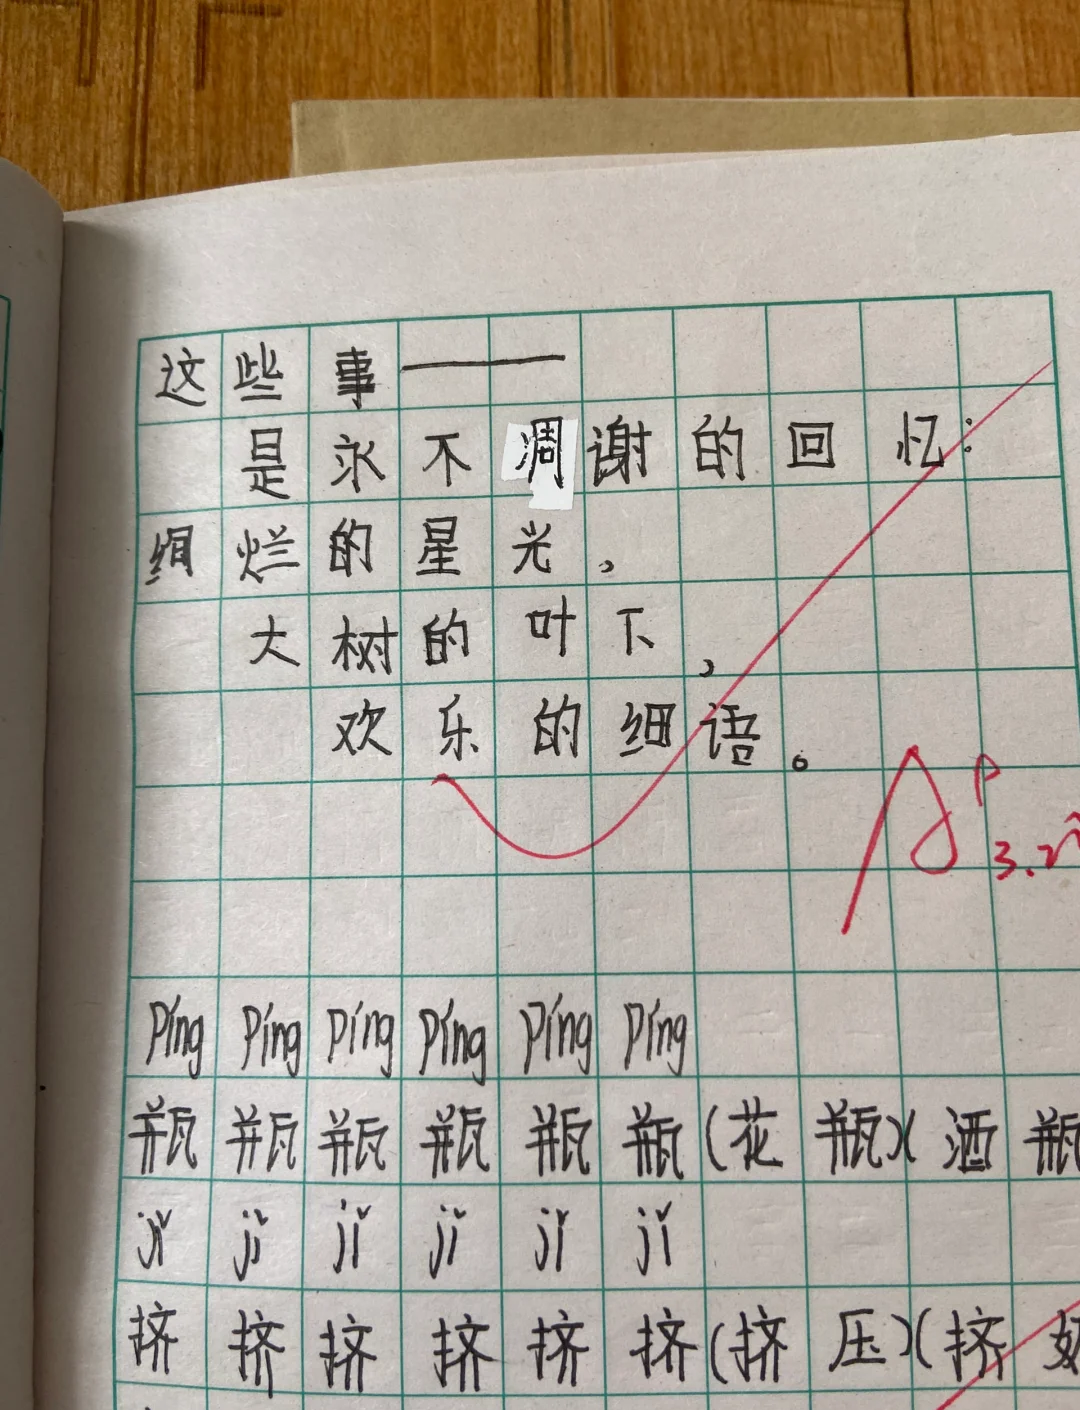 这些事——
是永不凋谢的回忆：
绚烂的星光，
大树的叶下，
欢乐的细语。
píng píng píng píng píng píng
瓶瓶瓶瓶瓶瓶(花瓶)(酒瓶
jǐ jǐ jǐ jǐ jǐ jǐ
挤挤挤挤挤挤(挤压)(挤